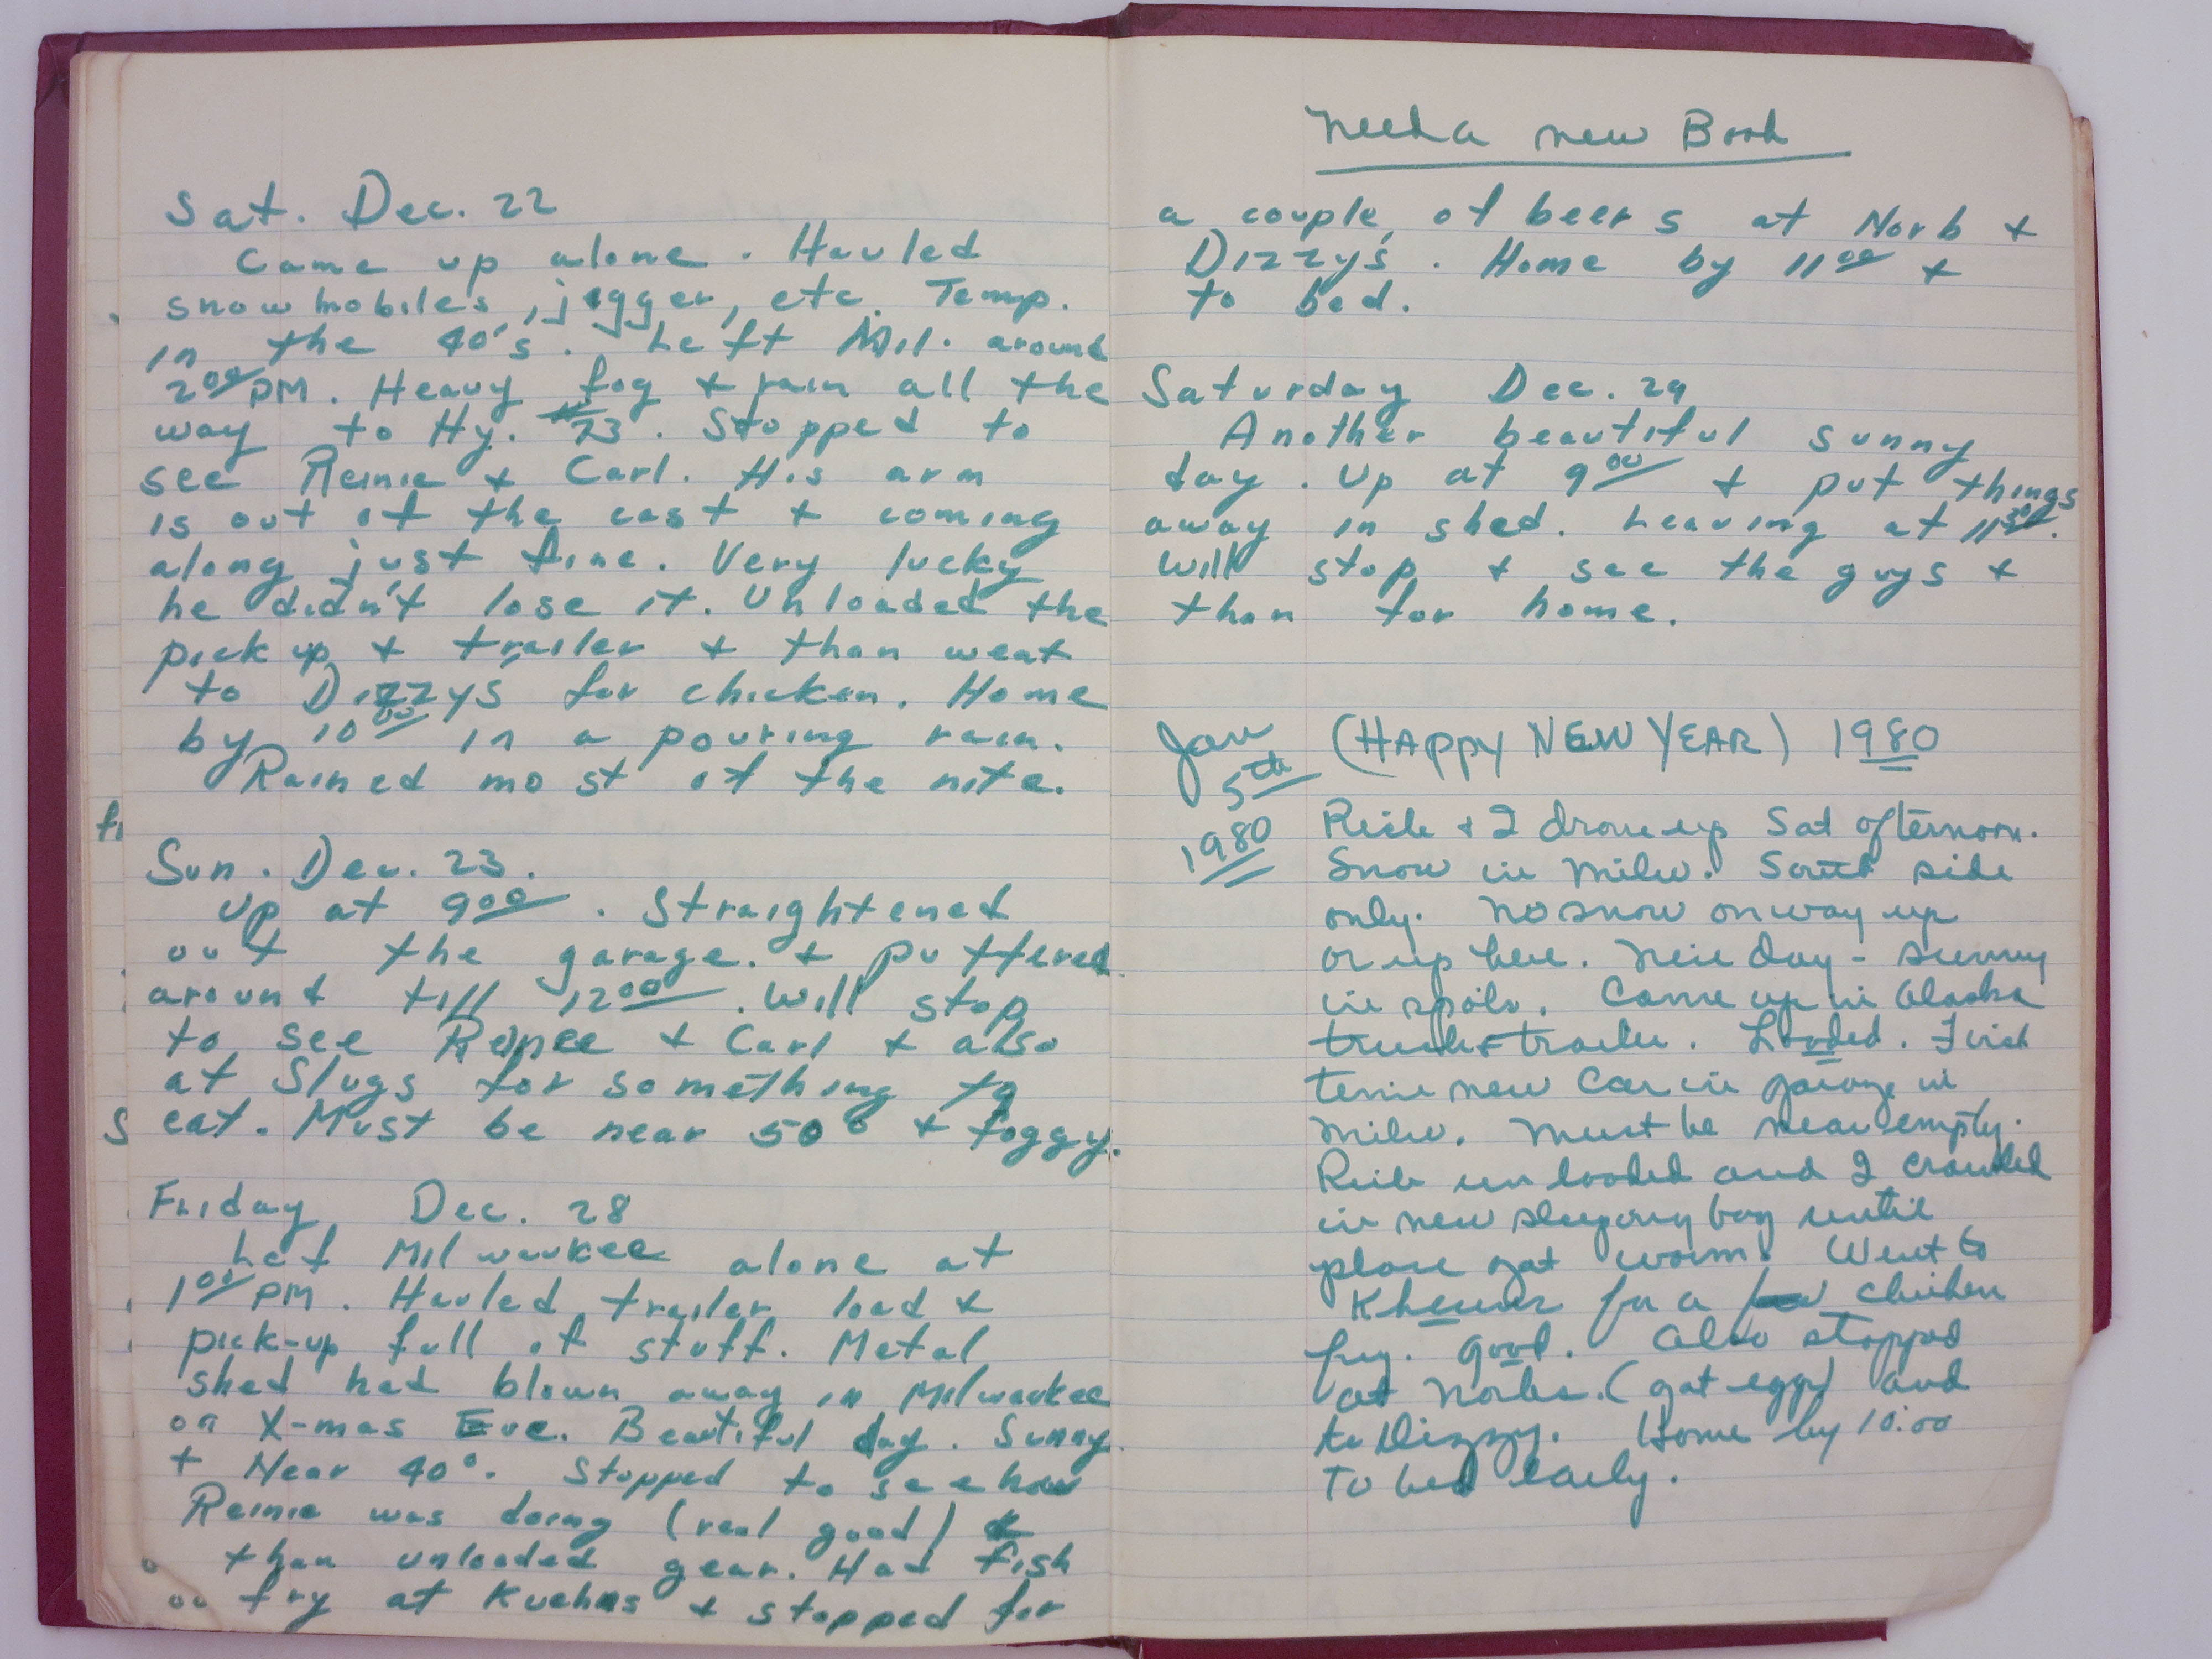 Sat. Dec. 22
Came up alone. Hauled
snowmobiles, jigger, etc. Temp.
in the 40's. Left Mil. around
2⁰⁰ PM. Heavy fog + rain all the
way to Hy. #23. Stopped to
see Reinie + Carl. His arm
is out of the cast + coming
along just fine. Very lucky
he didn't lose it. Unloaded the
pick up + trailer + than went
to Dizzy's for chicken. Home
by 10⁰⁰ in a pouring rain.
Rained most of the nite.
Sun. Dec. 23.
Up at 9⁰⁰. Straightened
out the garage. + puttered
around till 12⁰⁰. Will stop
to see Reinee + Carl + also
at Slugs for something to
eat. Must be near 50° + foggy.
Friday Dec. 28
Lef Milwaukee alone at
1⁰⁰ PM. Hauled trailer load +
pick-up full of stuff. Metal
shed had blown away in Milwaukee
on X-mas Eve. Beautiful day. Sunny
+ Near 40°. Stopped to see how
Reinie was doing (real good) +
than unloaded gear. Had fish
fry at Kuehns + stopped for
Need a new Book
a couple of beers at Norb +
Dizzy's. Home by 11⁰⁰ +
to bed.
Saturday Dec. 29
Another beautiful sunny
day. Up at 9⁰⁰ + put things
away in shed. Leaving at 11³⁰.
Will stop + see the guys +
than for home.
Jan (HAPPY NEW YEAR) 1980
5th
1980
& I drove up Sat afternoon.
Snow in Milw. South side
only. No snow on way up
or up here. Nice day - sunny
in spots. Came up in Alaska
truck + trailer. Loaded. First
time new car in garage in
Milw. Must be near empty.
unloaded and I crawled
in new sleeping bag until
place got warm. Went to
for a chicken
fry. Good. Also stopped
at Norbs. (got eggs) and
to Dizzy. Home by 10:00
To bed early.